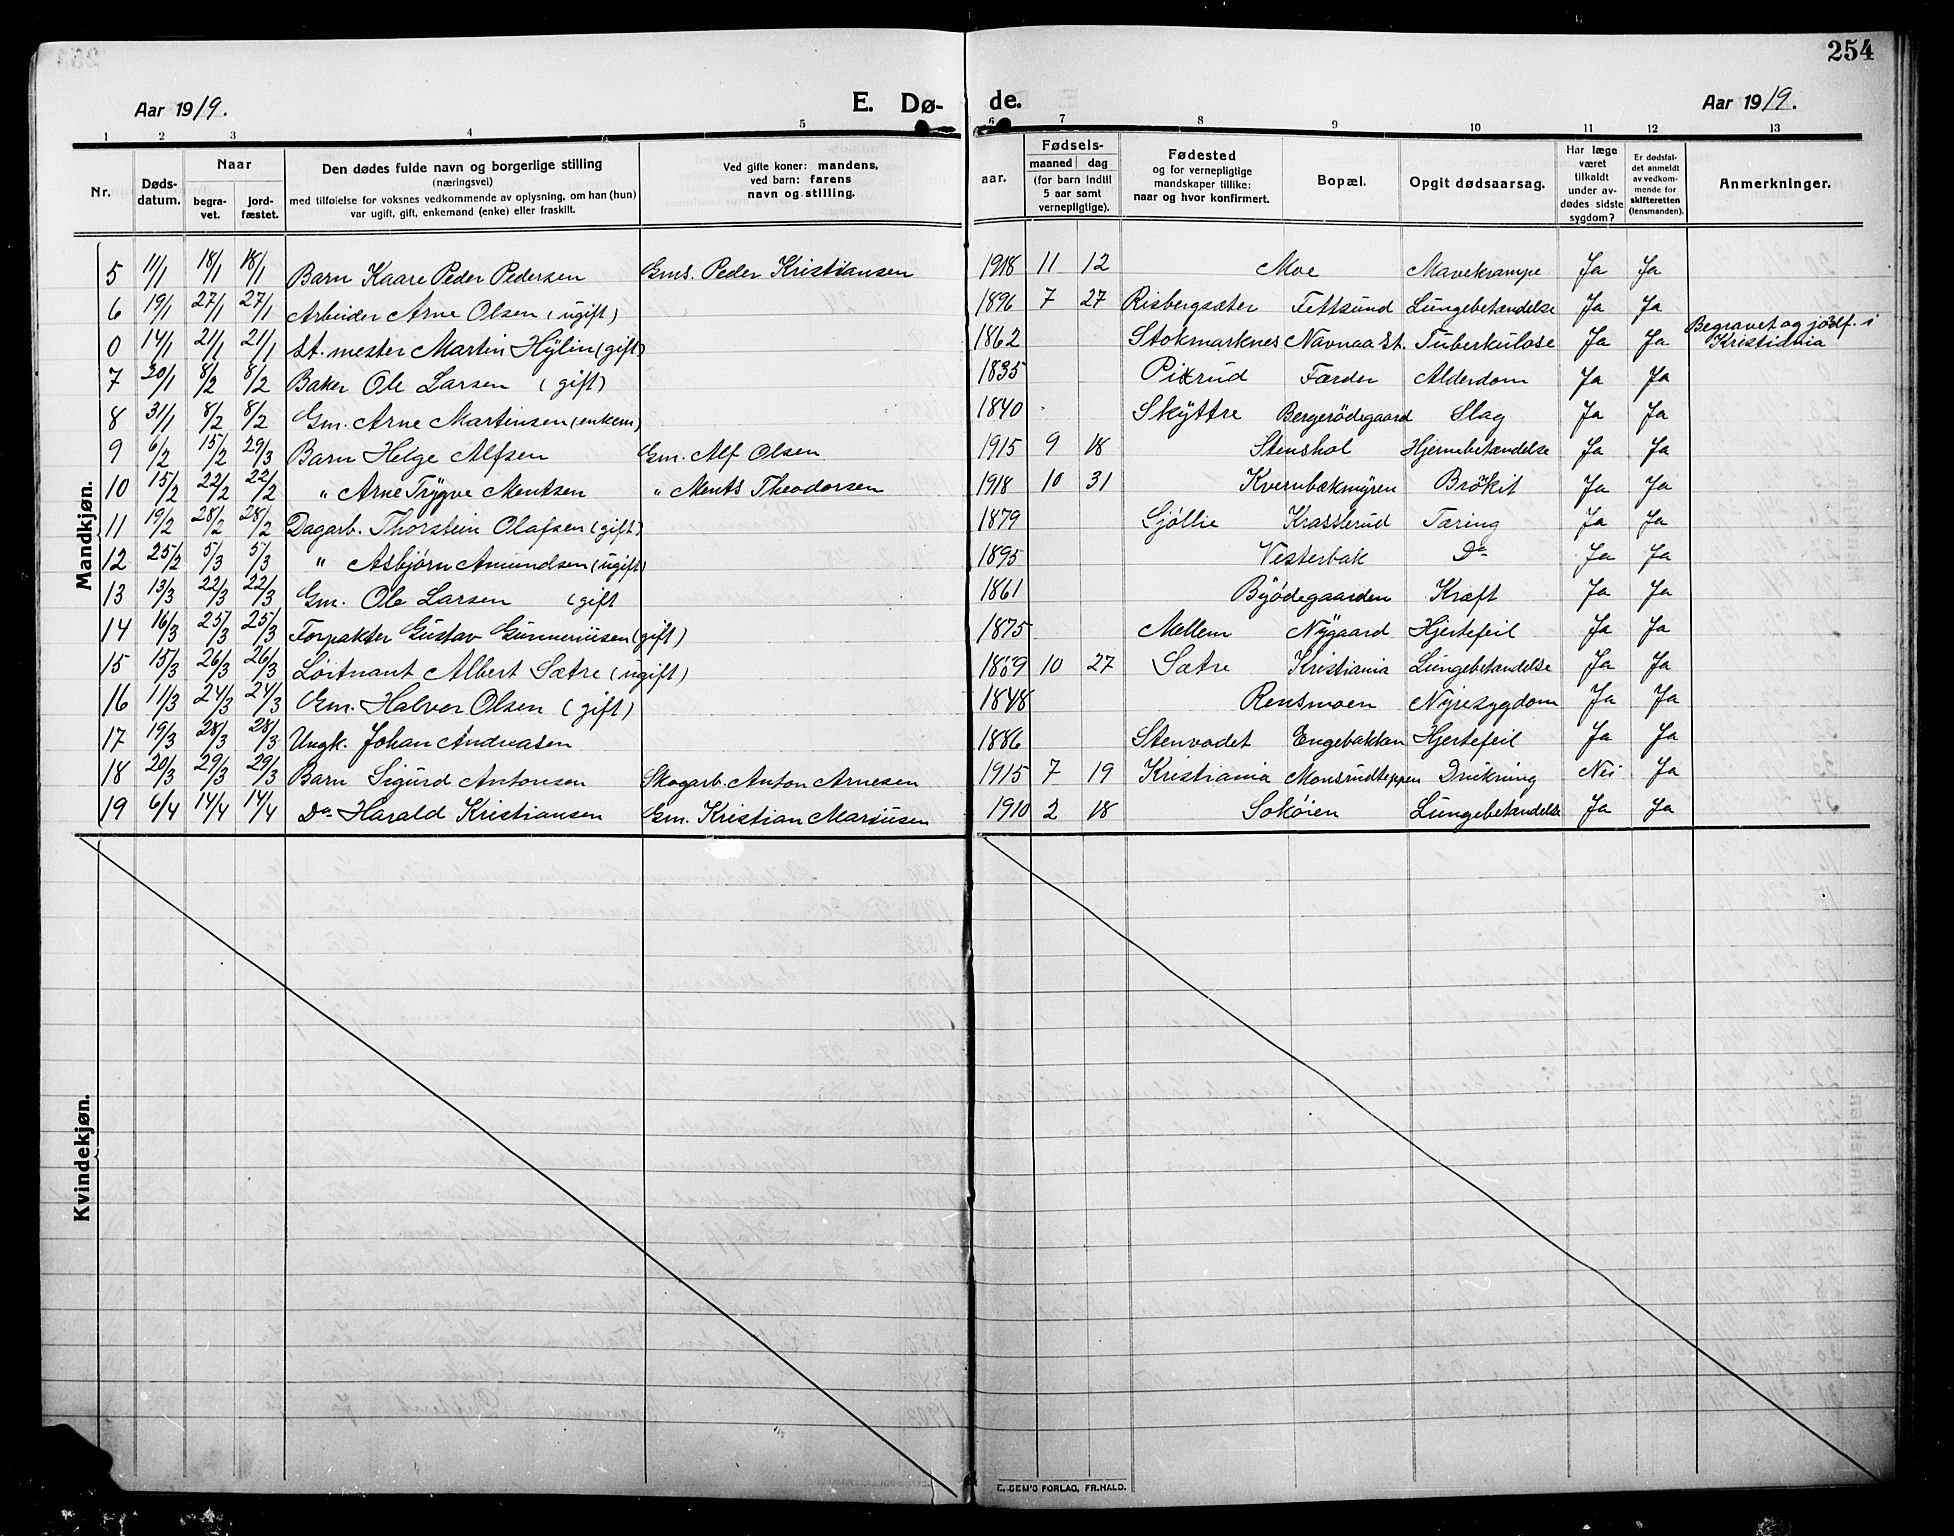 254
Aar 1919. E. Dø- de. Aar 1919.
1 2 3 4 5 6 7 8 9 10 11 12 13
Nr. Døds-datum. Naar begra-vet. jord-fæstet. Den dødes fulde navn og borgerlige stilling (næringsvei) med tilføielse for voksnes vedkommende av oplysning, om han (hun) var ugift, gift, enkemand (enke) eller fraskilt. Ved gifte koner: mandens, ved barn: farens navn og stilling. Fødsels- aar. maaned dag (for barn indtil 5 aar samt vernepligtige). Fødested og for vernepligtige mandskaper tillike: naar og hvor konfirmert. Bopæl. Opgit dødsaarsag. Har læge været tilkaldt under av-dødes sidste sygdom? Er dødsfal-det anmeldt av vedkom-mende for skifteretten (lensmanden). Anmerkninger.
Mandkjøn.
5 11/1 18/1 18/1 Barn Kaare Peder Pedersen Gms. Peder Kristiansen 1918 11 12 Moe Mavekrampe Ja Ja
6 19/1 27/1 27/1 Arbeider Arne Olsen (ugift) 1896 7 27 Risbergsæter Fettsund Lungebetændelse Ja Ja
0 14/1 21/1 21/1 St. mester Martin Hylin (gift) 1862 Stokmarknes Navnaa St. Tuberkulose Ja Ja Begravet og jordf. i Kristiania
7 30/1 8/2 8/2 Baker Ole Larsen (gift) 1835 Pixrud Færder Alderdom Ja Ja
8 31/1 8/2 8/2 Gm. Arne Martinsen (enkem) 1840 Skyttre Bergerødegaard Slag Ja Ja
9 6/2 15/2 29/3 Barn Helge Alfsen Gm. Alf Olsen 1915 9 18 Stenshol Hjernebetændelse Ja Ja
10 15/2 22/2 22/2 " Arne Trygve Mentsen " Ments Theodorsen 1918 10 31 Kvernbækmyren Brøkit Ja Ja
11 19/2 28/2 28/2 Dagarb. Thorstein Olafsen (gift) 1879 Gjøllie Krasslerud Tæring Ja Ja
12 25/2 5/3 5/3 " Asbjørn Amundsen (ugift) 1895 Vesterbak Do Ja Ja
13 13/3 22/3 22/3 Gm. Ole Larsen (gift 1861 Byødegaarden Kræft Ja Ja
14 16/3 25/3 25/3 Forpakter Gustav Gunneriusen (gift) 1875 Mellem Nygaard Hjertefeil Ja Ja
15 15/3 26/3 26/3 Løitnant Albert Sætre (ugift) 10 27 Sætre Kristiania Lungebetændelse Ja Ja
16 11/3 24/3 24/3 Gm. Halvor Olsen (gift) 1848 Rensmoen Nyresygdom Ja Ja
17 19/3 28/3 28/3 Ungk. Johan Andreasen 1886 Stenvadet Engebakken Hjertefeil Ja Ja
18 20/3 29/3 29/3 Barn Sigurd Antonsen Skogarb. Anton Arnesen 1915 7 19 Kristiania Monsrudteppen Drukning Nei Ja
19 6/4 14/4 14/4 Do Harald Kristiansen Gm. Kristian Mariusen 1910 2 18 Sokøien Lungebetændelse Ja Ja
Kvindekjøn.
E. SEM'S FORLAG, FR.HALD.